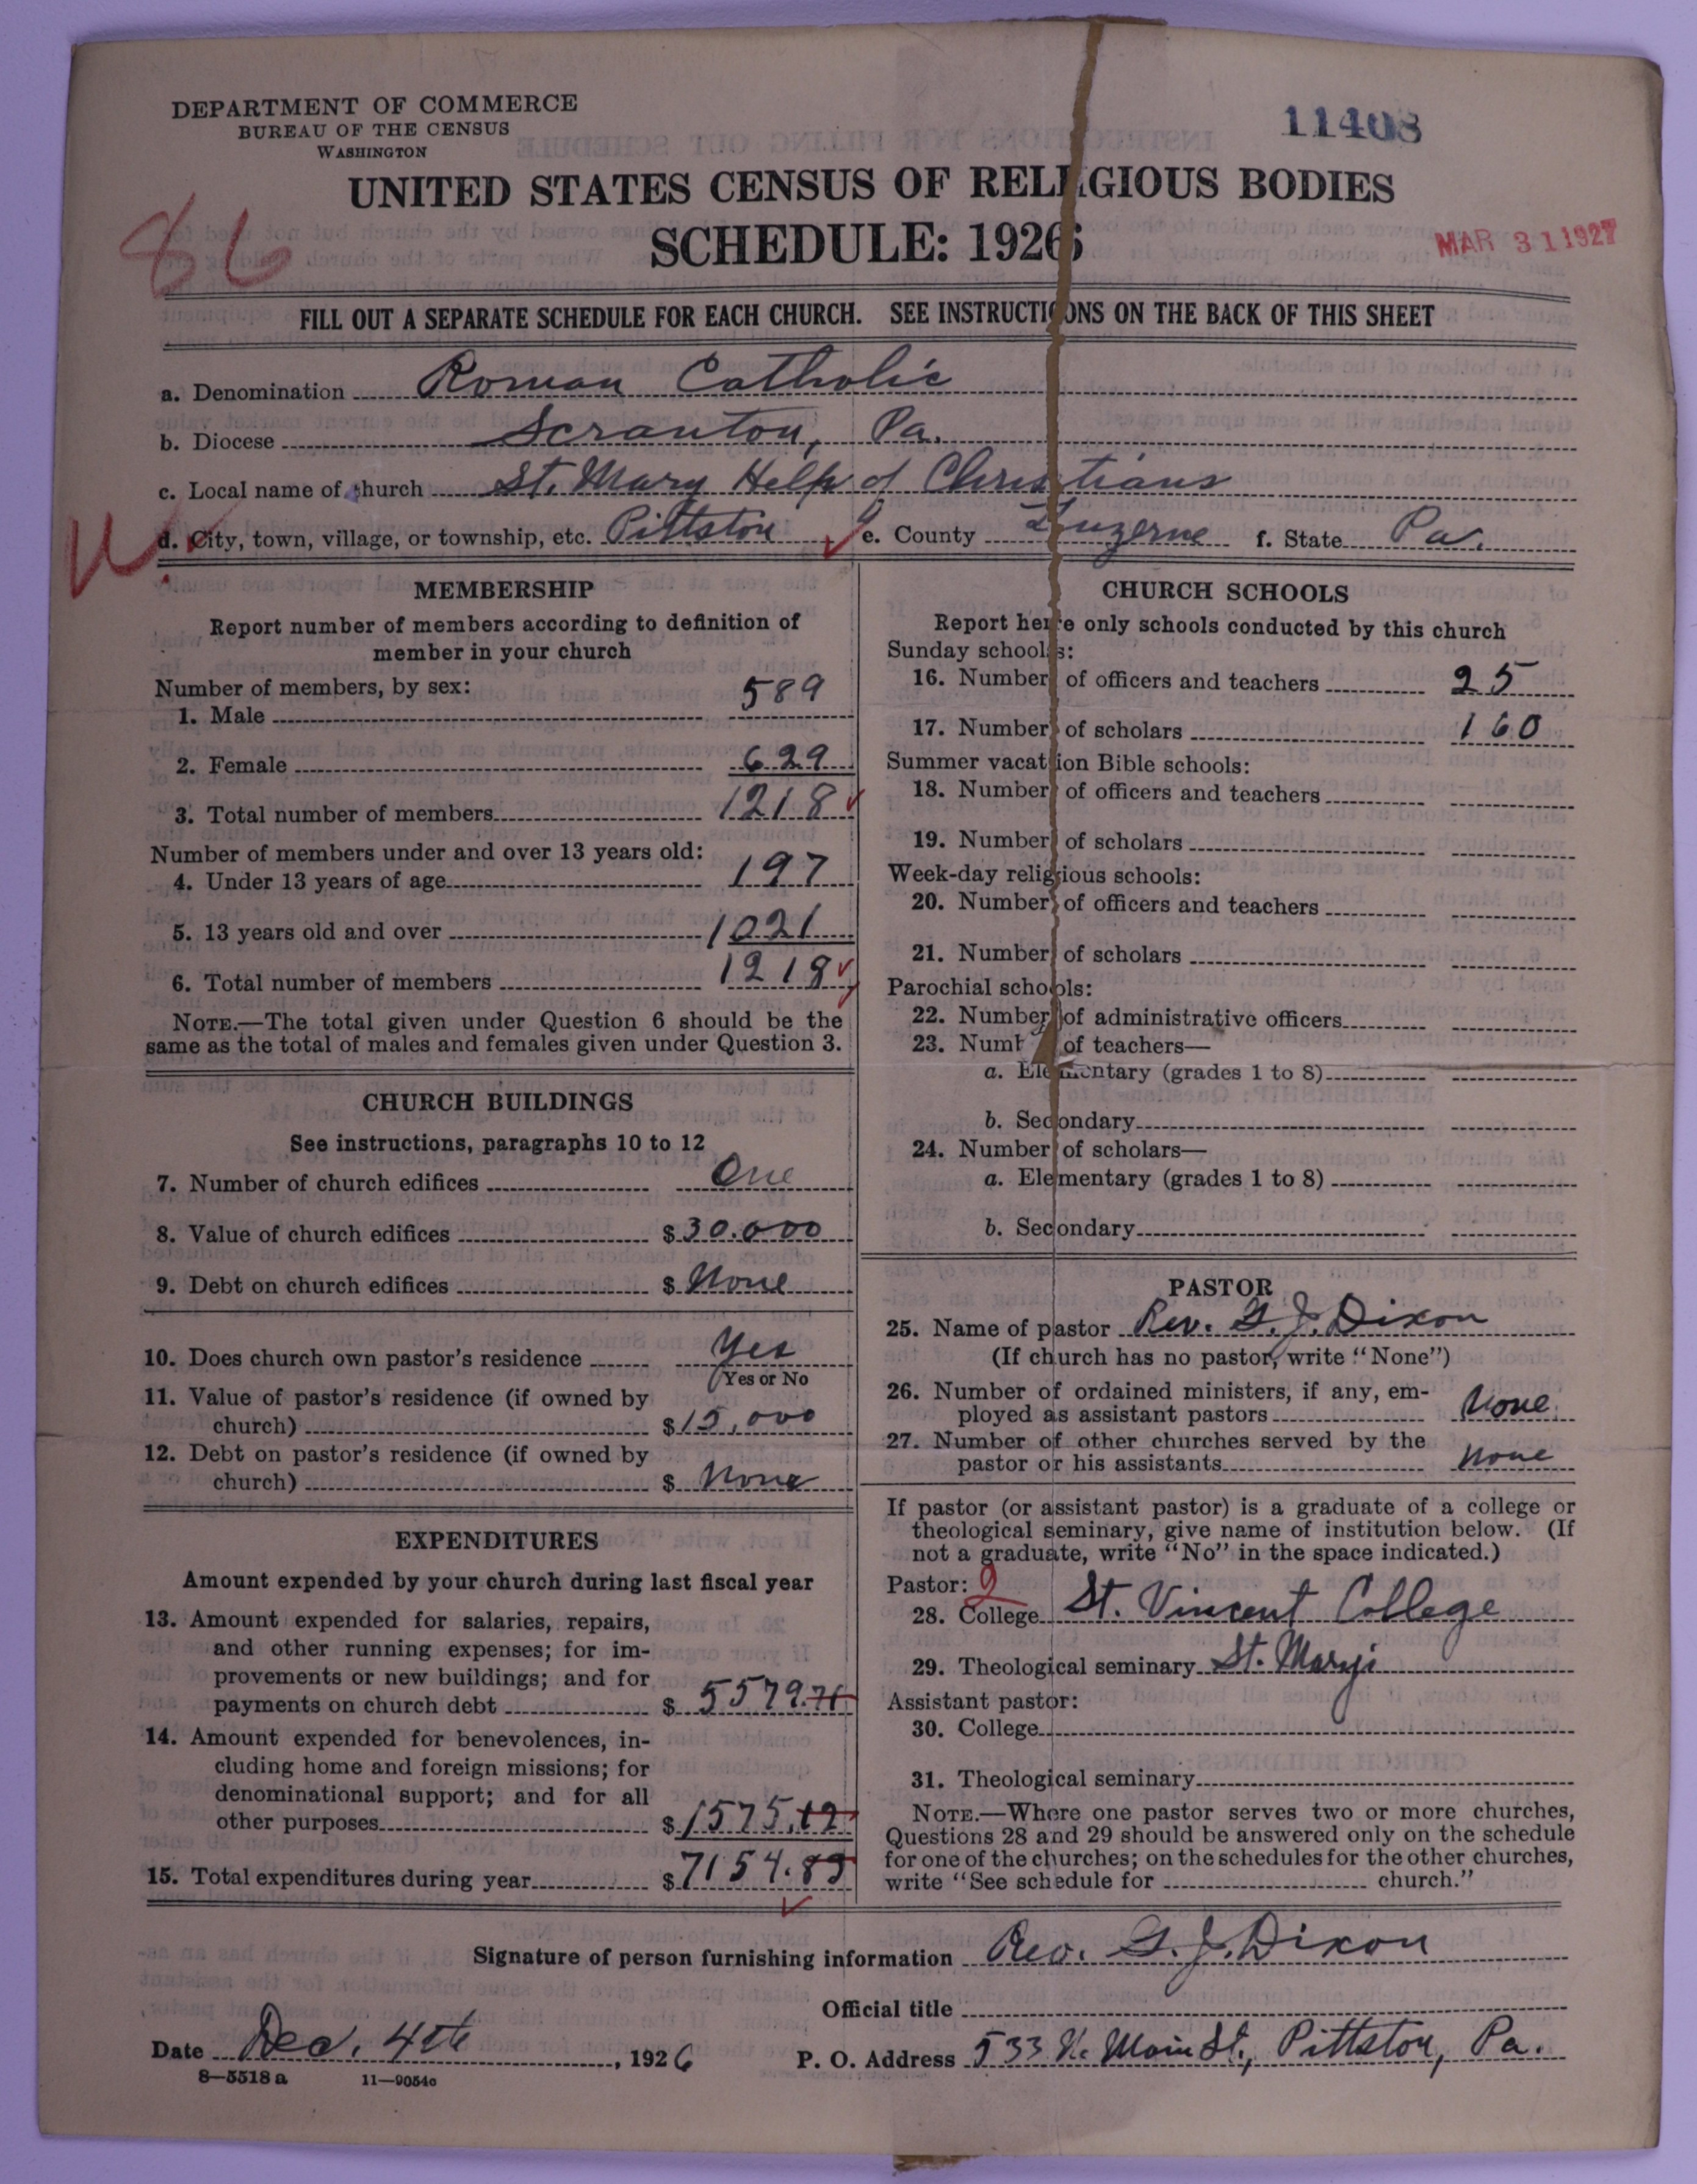 DEPARTMENT OF COMMERCE
BUREAU OF THE CENSUS
WASHINGTON
11408
UNITED STATES CENSUS OF RELIGIOUS BODIES
SCHEDULE: 1926
86
MAR 31 1927
FILL OUT A SEPARATE SCHEDULE FOR EACH CHURCH. SEE INSTRUCTIONS ON THE BACK OF THIS SHEET
a. Denomination Roman Catholic
b. Diocese Scranton, Pa.
c. Local name of church St. Mary Help of Christians
d. City, town, village, or township, etc. Pittston e. County Luzerne f. State Pa.
MEMBERSHIP
Report number of members according to definition of
member in your church
Number of members, by sex:
1. Male 589
2. Female 629
3. Total number of members 1218
Number of members under and over 13 years old:
4. Under 13 years of age 197
5. 13 years old and over 1021
6. Total number of members 1218
NOTE.—The total given under Question 6 should be the
same as the total of males and females given under Question 3.
CHURCH BUILDINGS
See instructions, paragraphs 10 to 12
7. Number of church edifices One
8. Value of church edifices $30.000
9. Debt on church edifices $ None
10. Does church own pastor's residence Yes
Yes or No
11. Value of pastor's residence (if owned by
church) $15,000
12. Debt on pastor's residence (if owned by
church) $ None
EXPENDITURES
Amount expended by your church during last fiscal year
13. Amount expended for salaries, repairs,
and other running expenses; for im-
provements or new buildings; and for
payments on church debt $ 5579.71
14. Amount expended for benevolences, in-
cluding home and foreign missions; for
denominational support; and for all
other purposes $1575.12
15. Total expenditures during year $7154.83
CHURCH SCHOOLS
Report here only schools conducted by this church
Sunday schools:
16. Number of officers and teachers 25
17. Number of scholars 160
Summer vacation Bible schools:
18. Number of officers and teachers
19. Number of scholars
Week-day religious schools:
20. Number of officers and teachers
21. Number of scholars
Parochial schools:
22. Number of administrative officers
23. Number of teachers—
a. Elementary (grades 1 to 8)
b. Secondary
24. Number of scholars—
a. Elementary (grades 1 to 8)
b. Secondary
PASTOR
25. Name of pastor Rev. G. J. Dixon
(If church has no pastor, write "None")
26. Number of ordained ministers, if any, em-
ployed as assistant pastors None
27. Number of other churches served by the
pastor or his assistants None
If pastor (or assistant pastor) is a graduate of a college or
theological seminary, give name of institution below. (If
not a graduate, write "No" in the space indicated.)
Pastor: 2
28. College St. Vincent College
29. Theological seminary St. Marys
Assistant pastor:
30. College
31. Theological seminary
NOTE.—Where one pastor serves two or more churches,
Questions 28 and 29 should be answered only on the schedule
for one of the churches; on the schedules for the other churches,
write "See schedule for church."
Signature of person furnishing information Rev. G. J. Dixon
Official title
Date Dec. 4th, 1926
P. O. Address 533 N. Main St., Pittston, Pa.
8—5518 a 11—9054c